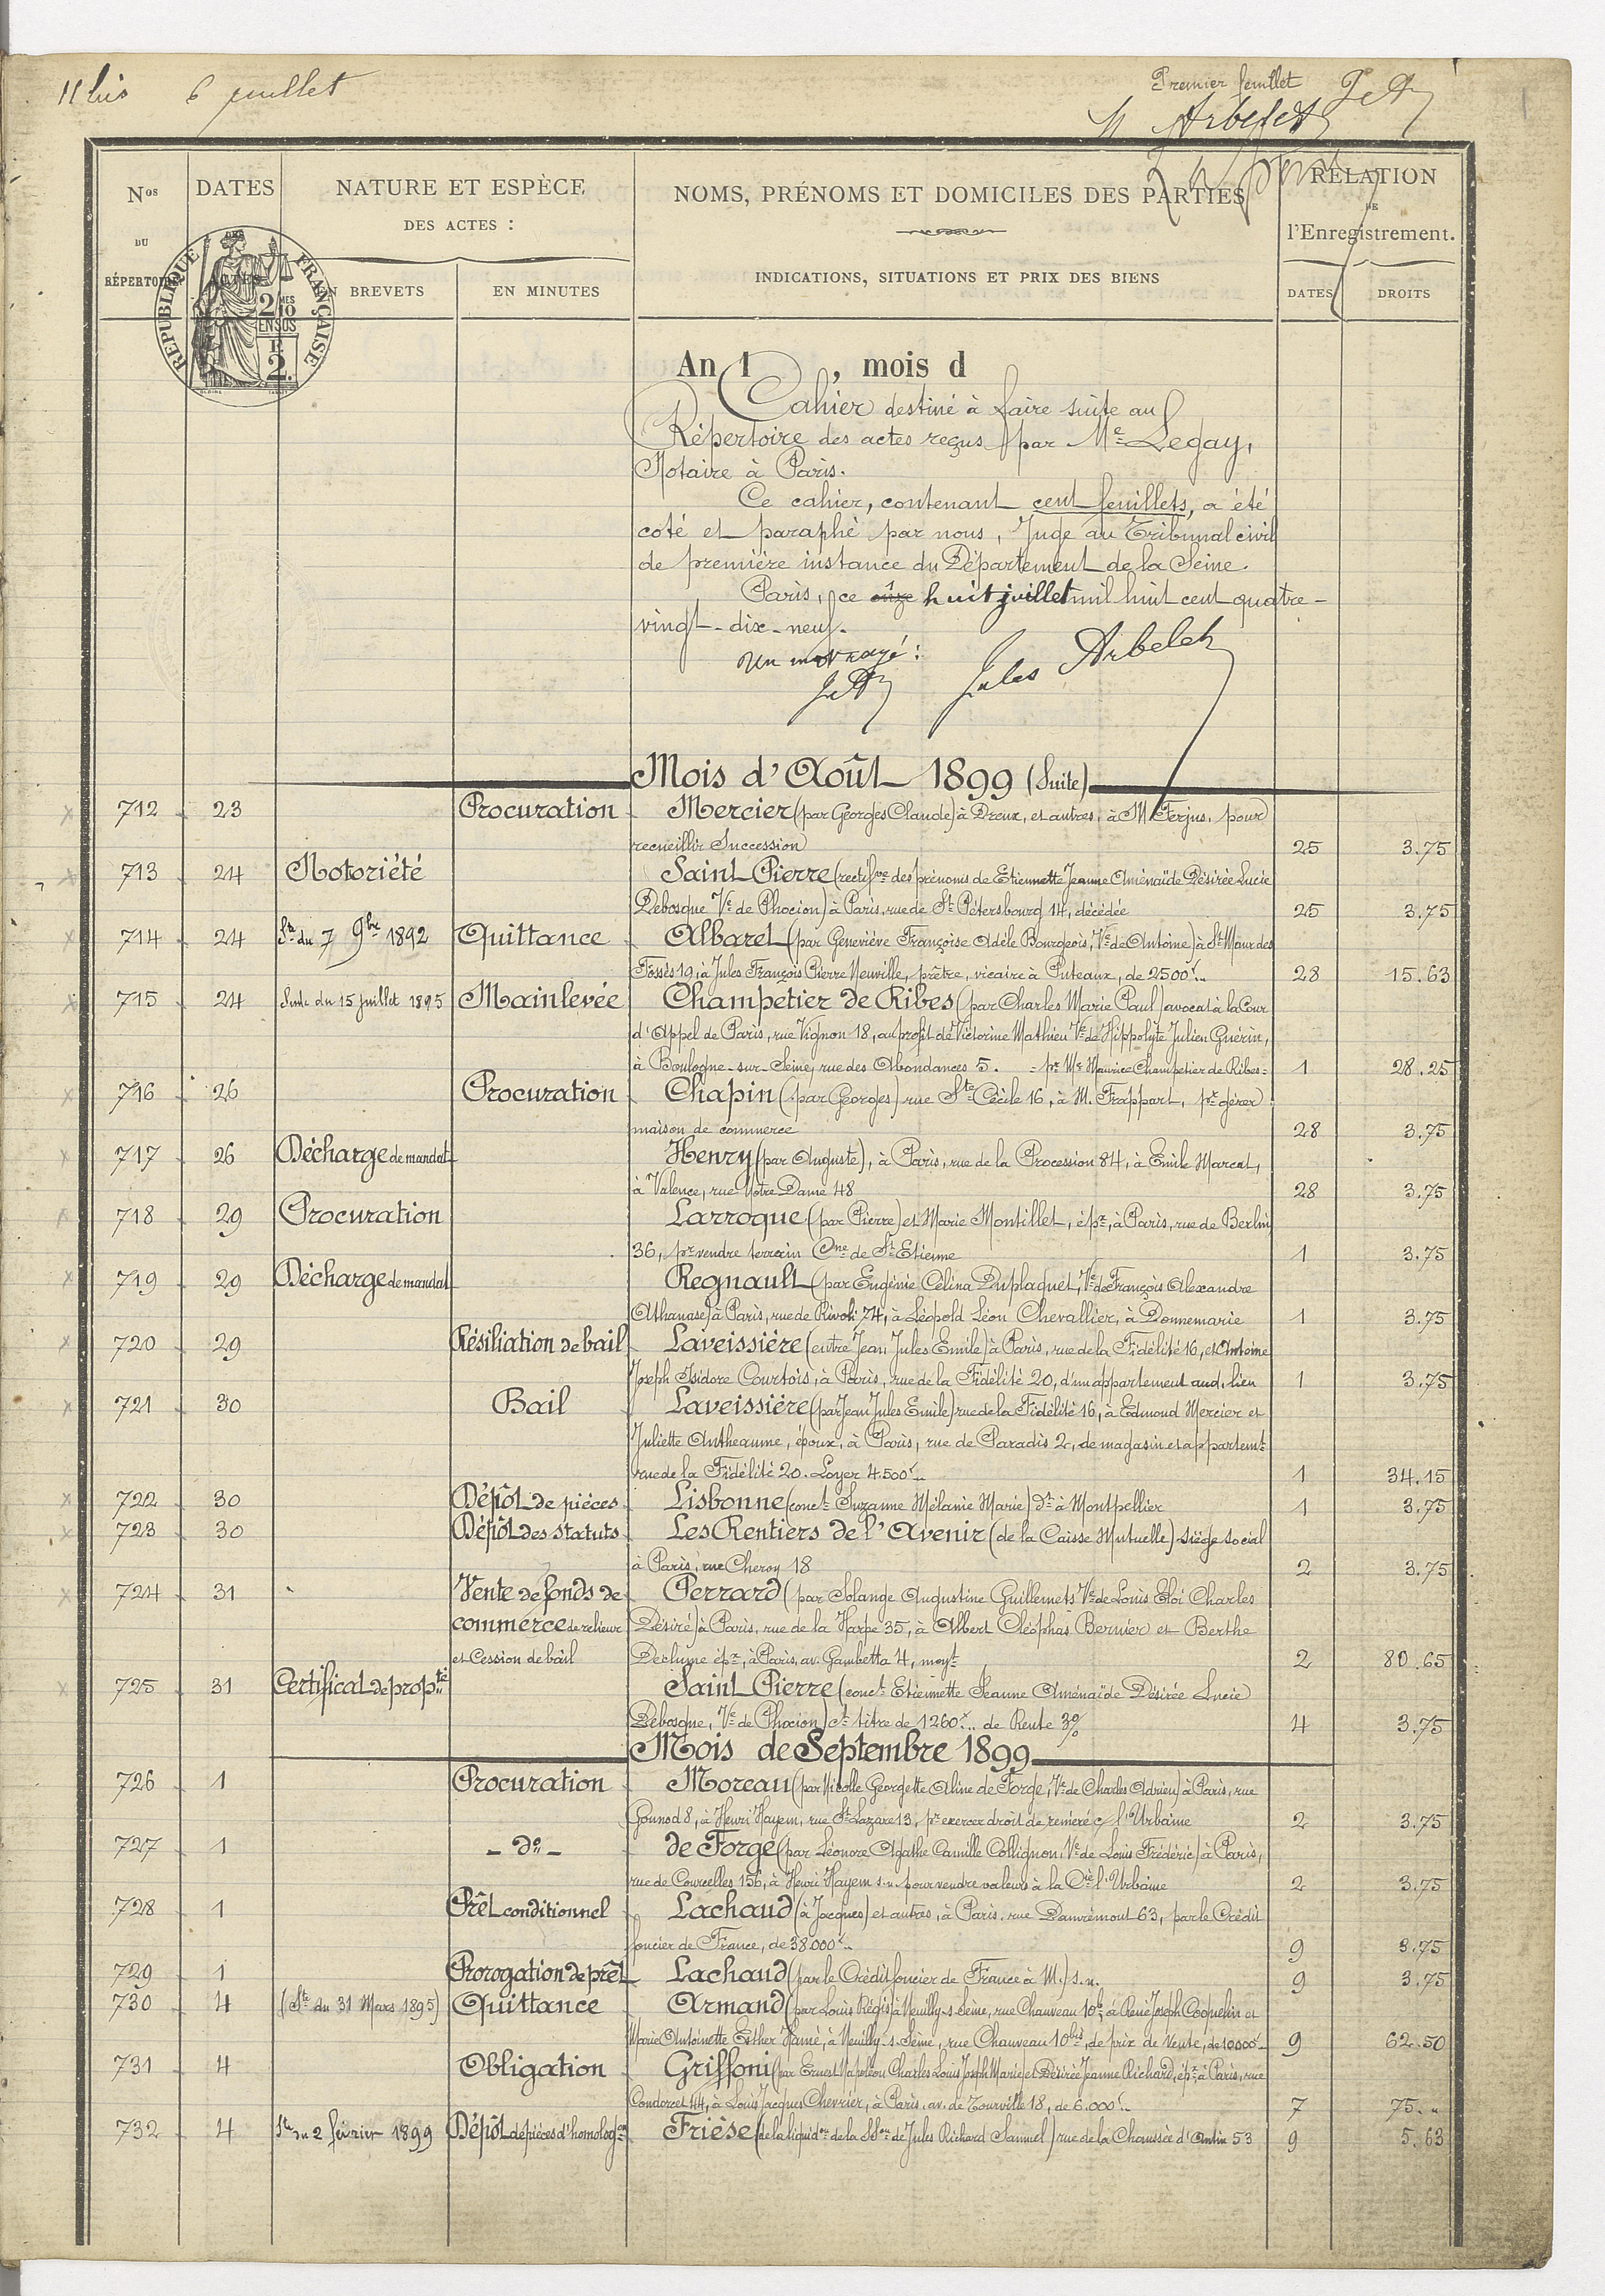 11 bis 6 juillet
Premier feuillet
M Arbelet
Nos DU RÉPERTOIRE
DATES DES ACTES
NATURE ET ESPÈCE
DES ACTES :
EN BREVETS
EN MINUTES
NOMS, PRÉNOMS ET DOMICILES DES PARTIES
INDICATIONS, SITUATIONS ET PRIX DES BIENS
RELATION
DE
l'Enregistrement.
DATES
DROITS
RÉPUBLIQUE FRANÇAISE
2 MES 10 EN SUS
2
An 1 , mois d
Cahier destiné à faire suite au
Répertoire des actes reçus par Me Legay,
Notaire à Paris.
Ce cahier, contenant cent feuillets, a été
coté et paraphé par nous, Juge au Tribunal civil
de première instance du Département de la Seine.
Paris, ce onze huit juillet mil huit cent quatre-
vingt-dix-neuf.
un mot rayé :
Jules Arbelet
Mois d'Août 1899 (Suite)
712 23 Procuration Mercier (par Georges Claude) à Dreux, et autres, à M. Ferjus, pour
recueillir Succession 25 3.75
713 24 Notoriété Saint Pierre (rectifive des prénoms de Etiennette Jeanne Aménaïde Désirée Lucie
Debosque Ve de Phocion) à Paris, rue de St Pétersbourg 14, décédée 25 3.75
714 24 Ste du 7 9bre 1892 Quittance Albaret (par Geneviève Françoise Adèle Bourgeois, Ve de Antoine) à St Maur des
Fossés 19, à Jules François Pierre Neuville, prêtre, vicaire à Puteaux, de 2500f.. 28 15.63
715 24 Suite du 15 juillet 1895 Mainlevée Champetier de Ribes (par Charles Marie Paul) avocat à la Cour
d'Appel de Paris, rue Vignon 18, au profit de Victorine Mathieu Ve de Hippolyte Julien Guérin,
à Boulogne-sur-Seine, rue des Abondances 5. = pr Me Maurice Champetier de Ribes = 1 28.25
716 26 Procuration Chapin (par Georges) rue Ste Cécile 16, à M. Frappart, pr gérer
maison de commerce 28 3.75
717 26 Décharge de mandat Henry (par Auguste), à Paris, rue de la Procession 84, à Emile Marcat,
à Valence, rue Notre Dame 48 28 3.75
718 29 Procuration Larroque (par Pierre) et Marie Montillet, épx, à Paris, rue de Berlin
36, pr vendre terrain Cne de St Etienne 1 3.75
719 29 Décharge de mandat Regnault (par Eugénie Célina Duplaquet, Ve de François Alexandre
Athanase) à Paris, rue de Rivoli 74, à Léopold Léon Chevallier, à Donnemarie 1 3.75
720 29 Résiliation de bail Laveissière (entre Jean Jules Emile) à Paris, rue de la Fidélité 16, et Antoine
Joseph Isidore Courtois, à Paris, rue de la Fidélité 20, d'un appartement aud. lieu 1 3.75
721 30 Bail Laveissière (par Jean Jules Emile) rue de la Fidélité 16, à Edmond Mercier et
Juliette Antheaume, époux, à Paris, rue de Paradis 2, de magasin et appartemt
rue de la Fidélité 20. Loyer 4.500f.. 1 34.15
722 30 Dépôt de pièces Lisbonne (conct Suzanne Mélanie Marie) dt à Montpellier 1 3.75
723 30 Dépôt des Statuts Les Rentiers de l'Avenir (de la Caisse Mutuelle) siège social
à Paris, rue Cheroy 18 2 3.75
724 31 Vente de fonds de Perrard (par Solange Augustine Guillemets Ve de Louis Eloi Charles
commerce de relieur Désiré) à Paris, rue de la Harpe 35, à Albert Cléophas Bernier et Berthe
et Cession de bail Declume épx, à Paris, av. Gambetta 4, moyt 2 80.65
725 31 Certificat de propté Saint Pierre (conct Etiennette Jeanne Aménaïde Désirée Lucie
Debosque, Ve de Phocion) ct titre de 1260f.. de Rente 3% 4 3.75
Mois de Septembre 1899
726 1 Procuration Moreau (par Nicolle Georgette Aline de Forge, Ve de Charles Adrien) à Paris, rue
Gounod 8, à Henri Hayem, rue St Lazare 13, pr exercer droit de réméré c/ l'Urbaine 2 3.75
727 1 - do - de Forge (par Léonore Agathe Camille Collignon, Ve de Louis Frédéric) à Paris,
rue de Courcelles 156, à Henri Hayem s.n. pour vendre valeurs à la Cie l'Urbaine 2 3.75
728 1 Prêt conditionnel Lachaud (à Jacques) et autres, à Paris, rue Damrémont 63, par le Crédit
foncier de France, de 38.000f.. 9 3.75
729 1 Prorogation de prêt Lachaud (par le Crédit foncier de France à M.) s.n. 9 3.75
730 4 (Ste du 31 Mars 1895) Quittance Armand (par Louis Régis) à Neuilly-s-Seine, rue Chauveau 10b, à René Joseph Coquelin et
Marie Antoinette Esther Hamé, à Neuilly-s-Seine, rue Chauveau 10bis, de prix de Vente, de 10.000f.. 9 62.50
731 4 Obligation Griffoni (par Ernest Napoléon Charles Louis Joseph Marie) et Désirée Jeanne Richard, épx, à Paris, rue
Condorcet 44, à Louis Jacques Chevrier, à Paris, av. de Tourville 18, de 6.000f.. 7 75. "
732 4 Ste du 2 février 1899 Dépôt de pièces d'homologon Frièse (de la liquidon de la SSon de Jules Richard Samuel) rue de la Chaussée d'Antin 53 9 5.63